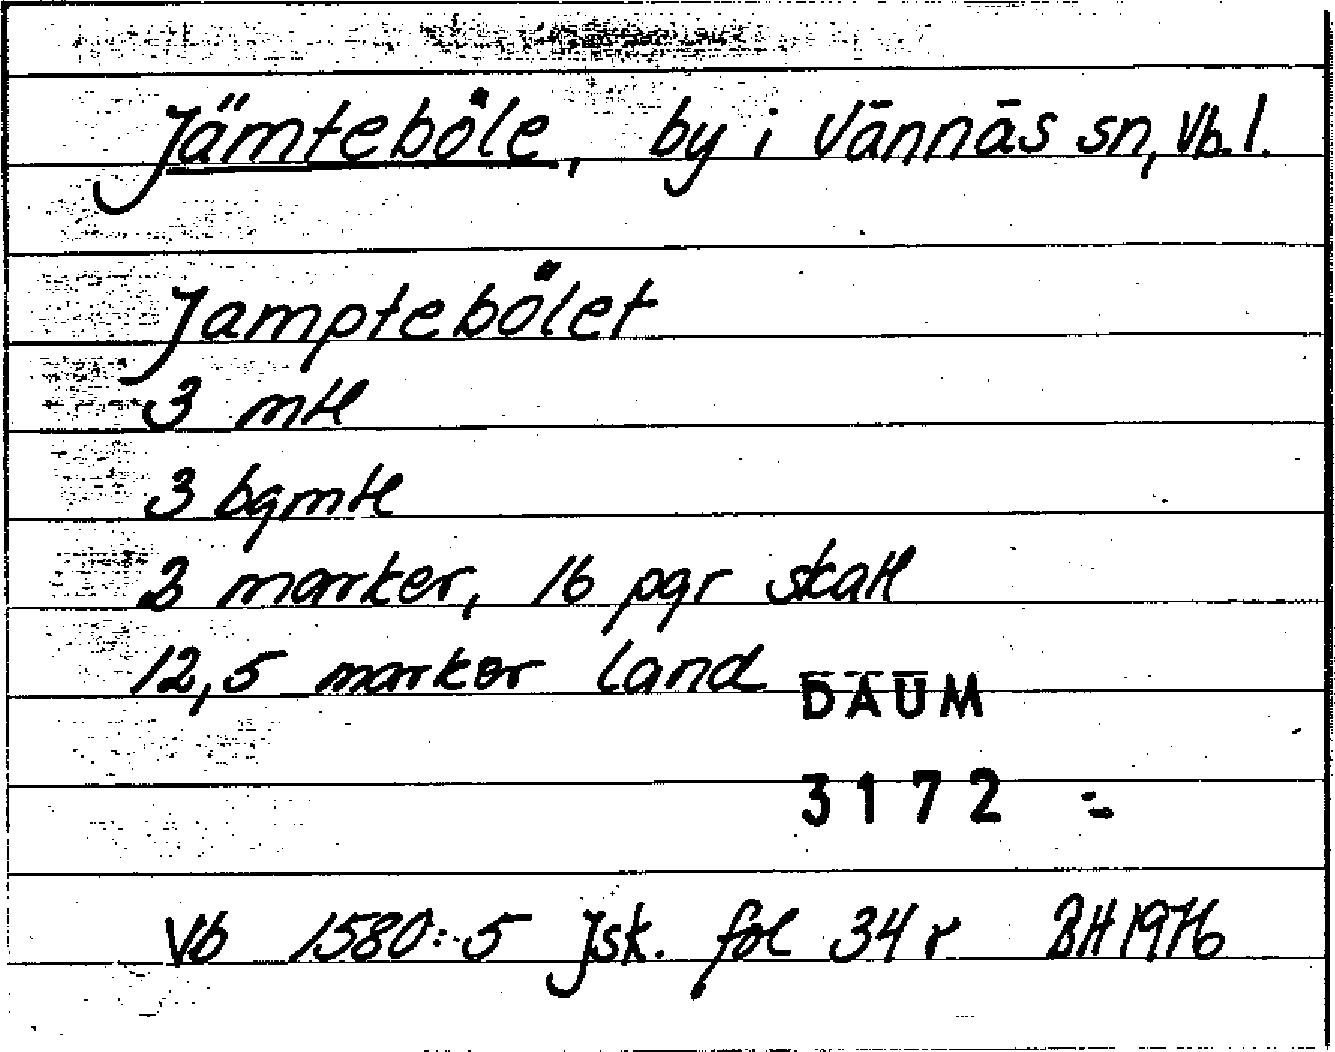 Jämteböle, by i Vännäs sn, Vb. l.
Jamptebölet
3 mtl
3 bgmtl
3 marker, 16 pgr skatt
12,5 marker land
DAUM
3172 =
Vb 1580:5 Jsk. fol 34 r BH 1976